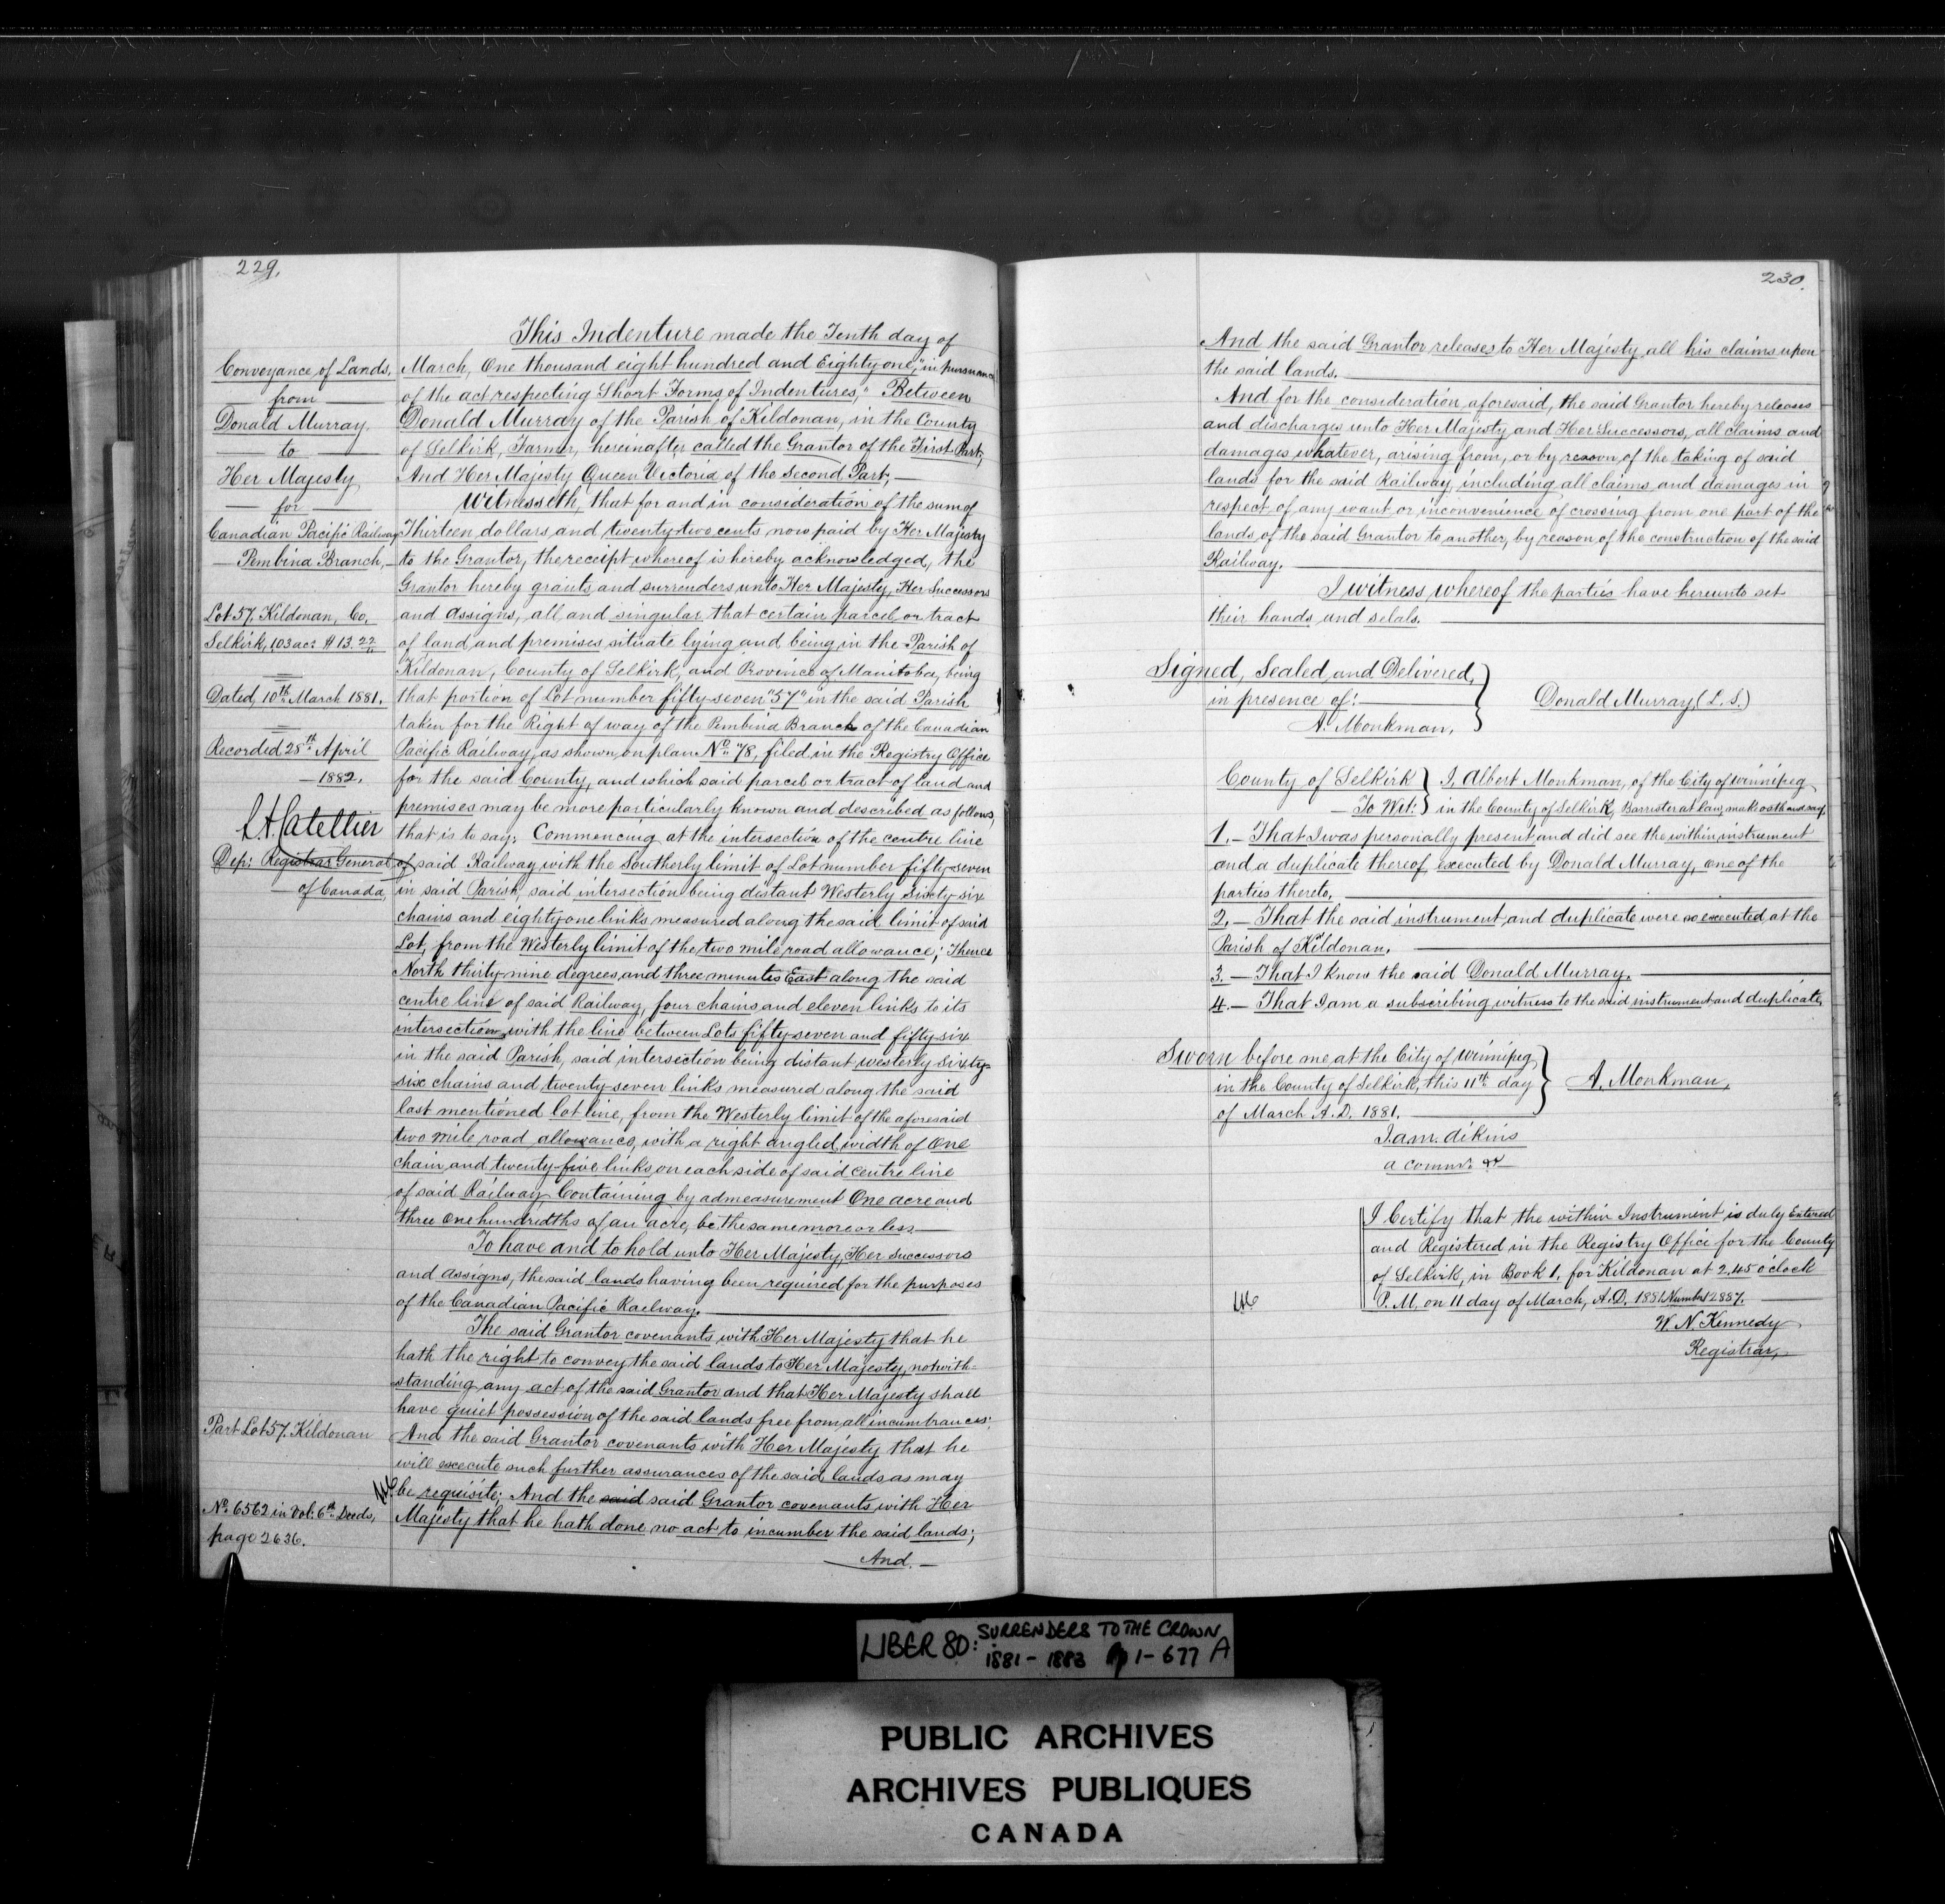 229.
Conveyance of Lands,
from
Donald Murray.
to
Her Majesty
for
Canadian Pacific Railway
Pembina Branch,
Lot 57, Kildonan, Co,
Selkirk, 1.03 ac: $13.22
Dated 10th March 1881.
Recorded 28th April
1882.
Dep: Registrar General
of Canada,
Part Lot 57. Kildonan
No. 6562 in Vol: 6th Deeds,
page 2636.
This Indenture made the Tenth day of
March, One thousand eight hundred and Eighty one, "in pursuance
of the act respecting Short Forms of Indentures," Between
Donald Murray of the Parish of Kildonan, in the County
of Selkirk, Farmer, hereinafter called the Grantor of the First Part,
And Her Majesty Queen Victoria of the Second Part,
Witnesseth, that for and in consideration of the sum of
Thirteen dollars and twenty-two cents now paid by Her Majesty
to the Grantor, the receipt whereof is hereby acknowledged, the
Grantor hereby grants and surrenders unto Her Majesty, Her Successors
and Assigns, all and singular that certain parcel or tract
of land and premises situate lying and being in the Parish of
Kildonan, County of Selkirk, and Province of Manitoba, being
that portion of Lot number fifty-seven "57" in the said Parish
taken for the Right of way of the Pembina Branch of the Canadian
Pacific Railway, as shown on plan No. "78, filed in the Registry Office
for the said County, and which said parcel or tract of land and
premises may be more particularly known and described as follows,
that is to say: Commencing at the intersection of the centre line
of said Railway with the Southerly limit of Lot number fifty-seven
in said Parish, said intersection being distant Westerly Sixty-six
chains and eighty-one links measured along the said limit of said
Lot, from the Westerly limit of the two mile road allowance; Thence
North thirty-nine degrees, and three minutes East along the said
centre line of said Railway, four chains and eleven links to its
intersection with the line between Lots fifty-seven and fifty-six
in the said Parish, said intersection being distant westerly sixty-
six chains and twenty-seven links measured along the said
last mentioned lot line, from the Westerly limit of the aforesaid
two mile road allowance, with a right angled width of One
chain and twenty-five links on each side of said centre line
of said Railway Containing by admeasurement One acre and
three One hundredths of an acre, be the same more or less.
To have and to hold unto Her Majesty, Her Successors
and Assigns, the said lands having been required for the purposes
of the Canadian Pacific Railway.
The said Grantor covenants with Her Majesty that he
hath the right to convey the said lands to Her Majesty, notwith=
standing any act of the said Grantor and that Her Majesty shall
have quiet possession of the said lands free from all incumbrances:
And the said Grantor covenants with Her Majesty that he
will execute such further assurances of the said lands as may
be requisite; And the said said Grantor covenants with Her
Majesty that he hath done no act to incumber the said lands;
And.
230.
And the said Grantor releases to Her Majesty all his claims upon
the said lands.
And for the consideration aforesaid, the said Grantor hereby releases
and discharges unto Her Majesty and Her Successors, all claims and
damages whatever, arising from, or by reason of the taking of said
lands for the said Railway, including all claims and damages in
respect of any want or inconvenience of crossing from one part of the
lands of the said Grantor to another, by reason of the construction of the said
Railway.
I witness whereof the parties have hereunto set
their hands and selals.
Signed, Sealed, and Delivered,
in presence of:
A. Monkman.
Donald Murray, (L. S.)
County of Selkirk
To Wit:
I, Albert Monkman, of the City of Winnipeg
in the County of Selkirk, Barrister at law, make oath and say,
1. - That I was personally present and did see the within instrument
and a duplicate thereof, executed by Donald Murray, one of the
parties thereto.
2. - That the said instrument and duplicate were so executed at the
Parish of Kildonan.
3. - That I know the said Donald Murray.
4. - That I am a subscribing witness to the said instrument and duplicate.
Sworn before me at the City of Winnipeg
in the County of Selkirk, this 11th day
of March A.D. 1881.
A. Monkman,
a commr. &c
I Certify that the within Instrument is duly Entered
and Registered in the Registry Office for the County
of Selkirk, in Book 1, for Kildonan at 2.45 o'clock
P.M, on 11 day of March, A.D. 1881 Number 2887.
W. N. Kennedy
Registrar,
LIBER 80: SURRENDERS TO THE CROWN
1881 - 1883 pp 1 - 677 A
PUBLIC ARCHIVES
ARCHIVES PUBLIQUES
CANADA